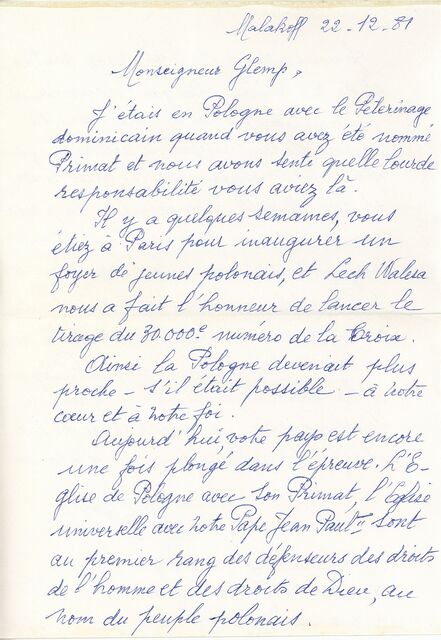 Malakoff 22-12-81
Monseigneur Glemp,
J'étais en Pologne avec le Pélerinage
dominicain quand vous avez été nommé
Primat et nous avons senti quelle lourde
responsabilité vous aviez là.
Il y a quelques semaines, vous
étiez à Paris pour inaugurer un
foyer de jeunes polonais, et Lech Walesa
nous a fait l'honneur de lancer le
tirage du 30.000e numéro de la Croix.
Ainsi la Pologne devenait plus
proche - s'il était possible - à notre
cœur et à notre foi.
Aujourd'hui, votre pays est encore
une fois plongé dans l'épreuve. L'E-
glise de Pologne avec son Primat, l'Eglise
universelle avec notre Pape Jean Paul II sont
au premier rang des défenseurs des droits
de l'homme et des droits de Dieu, au
nom du peuple polonais.